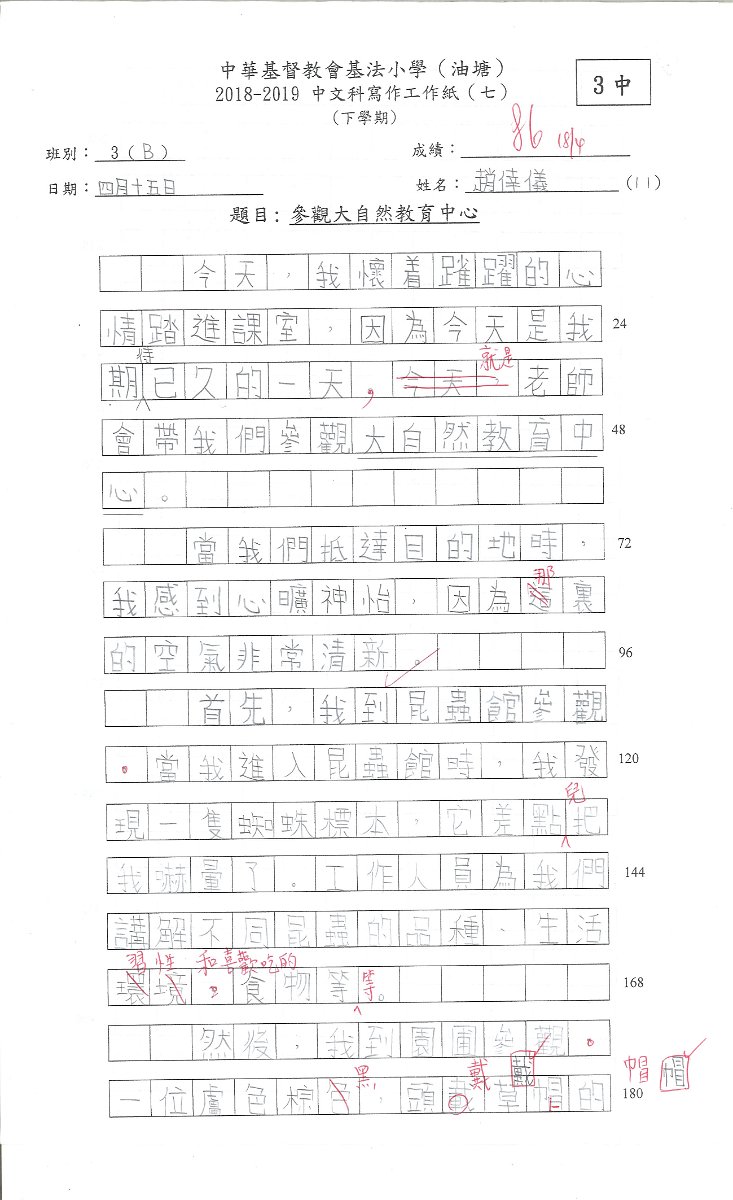 中華基督教會基法小學（油塘）
2018-2019 中文科寫作工作紙（七）
（下學期）
3中
班別： 3（B）
成績： 86 18/4
日期：四月十五日
姓名：趙倖儀 （11）
題目：參觀大自然教育中心
今天，我懷着踴躍的心
情踏進課室，因為今天是我 24
待
就是
期已久的一天，今天，老師
會帶我們參觀大自然教育中 48
心。
當我們抵達目的地時， 72
那
我感到心曠神怡，因為這裏
的空氣非常清新。 96
首先，我到昆蟲館參觀
。當我進入昆蟲館時，我發 120
兒
現一隻蜘蛛標本，它差點把
我嚇暈了。工作人員為我們 144
講解不同昆蟲的品種、生活
習性 和喜歡吃的
環境、食物等等。 168
然後，我到園圃參觀。
黑 戴 戴 帽 帽
一位膚色棕色，頭戴草帽的 180